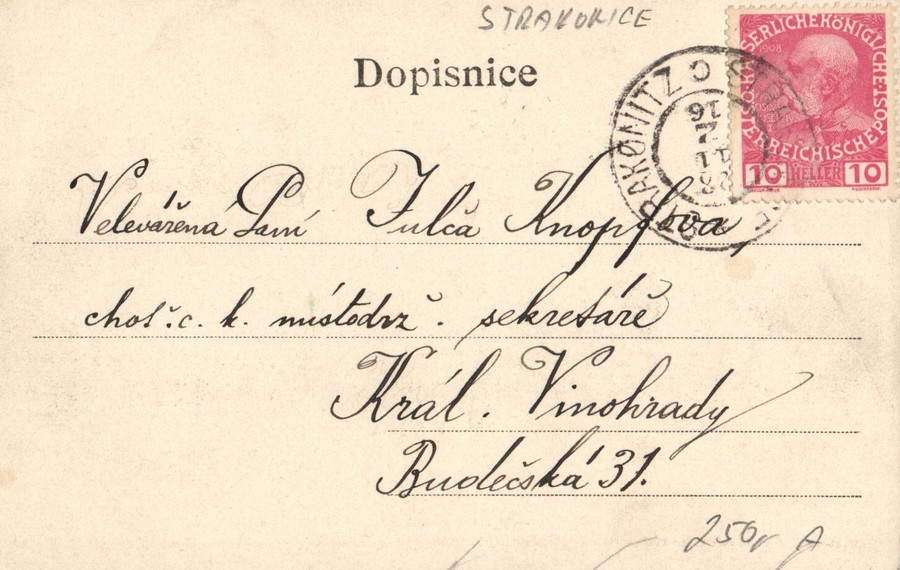 STRAKONICE
Dopisnice
KAISERLICHE KÖNIGLICHE ÖSTERREICHISCHE POST
1908
10 HELLER 10
STRAKONITZ
Velevážená Paní Julča Knopfova,
choť. c. k. místodrž. sekretáře
Král. Vinohrady
Budečská 31.
250,- A